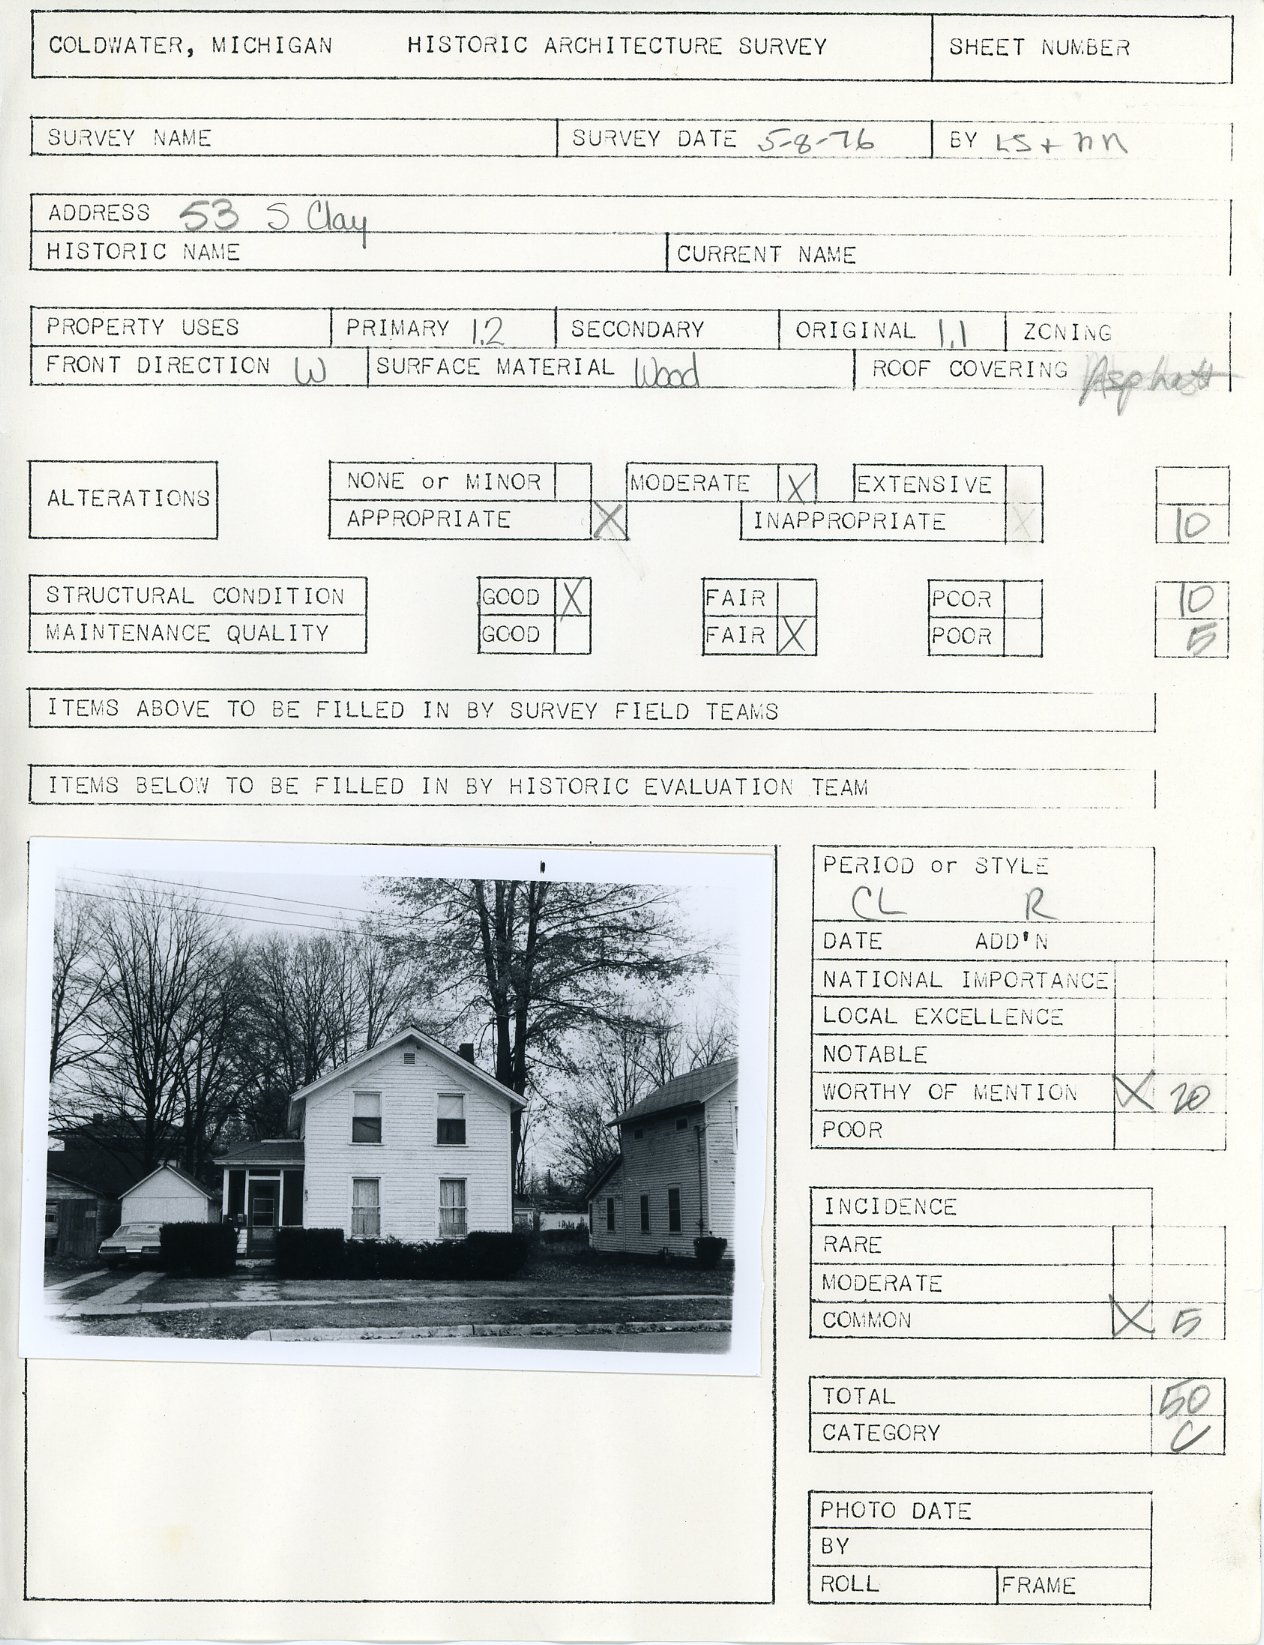 COLDWATER, MICHIGAN HISTORIC ARCHITECTURE SURVEY SHEET NUMBER
SURVEY NAME SURVEY DATE 5-8-76 BY LS + NN
ADDRESS 53 S Clay
HISTORIC NAME CURRENT NAME
PROPERTY USES PRIMARY 1.2 SECONDARY ORIGINAL 1.1 ZONING
FRONT DIRECTION W SURFACE MATERIAL Wood ROOF COVERING Asphalt
ALTERATIONS NONE or MINOR MODERATE X EXTENSIVE
APPROPRIATE X INAPPROPRIATE X 10
STRUCTURAL CONDITION GOOD X FAIR POOR 10
MAINTENANCE QUALITY GOOD FAIR X POOR 5
ITEMS ABOVE TO BE FILLED IN BY SURVEY FIELD TEAMS
ITEMS BELOW TO BE FILLED IN BY HISTORIC EVALUATION TEAM
PERIOD or STYLE
CL R
DATE ADD'N
NATIONAL IMPORTANCE
LOCAL EXCELLENCE
NOTABLE
WORTHY OF MENTION X 20
POOR
INCIDENCE
RARE
MODERATE
COMMON X 5
TOTAL 50
CATEGORY C
PHOTO DATE
BY
ROLL FRAME